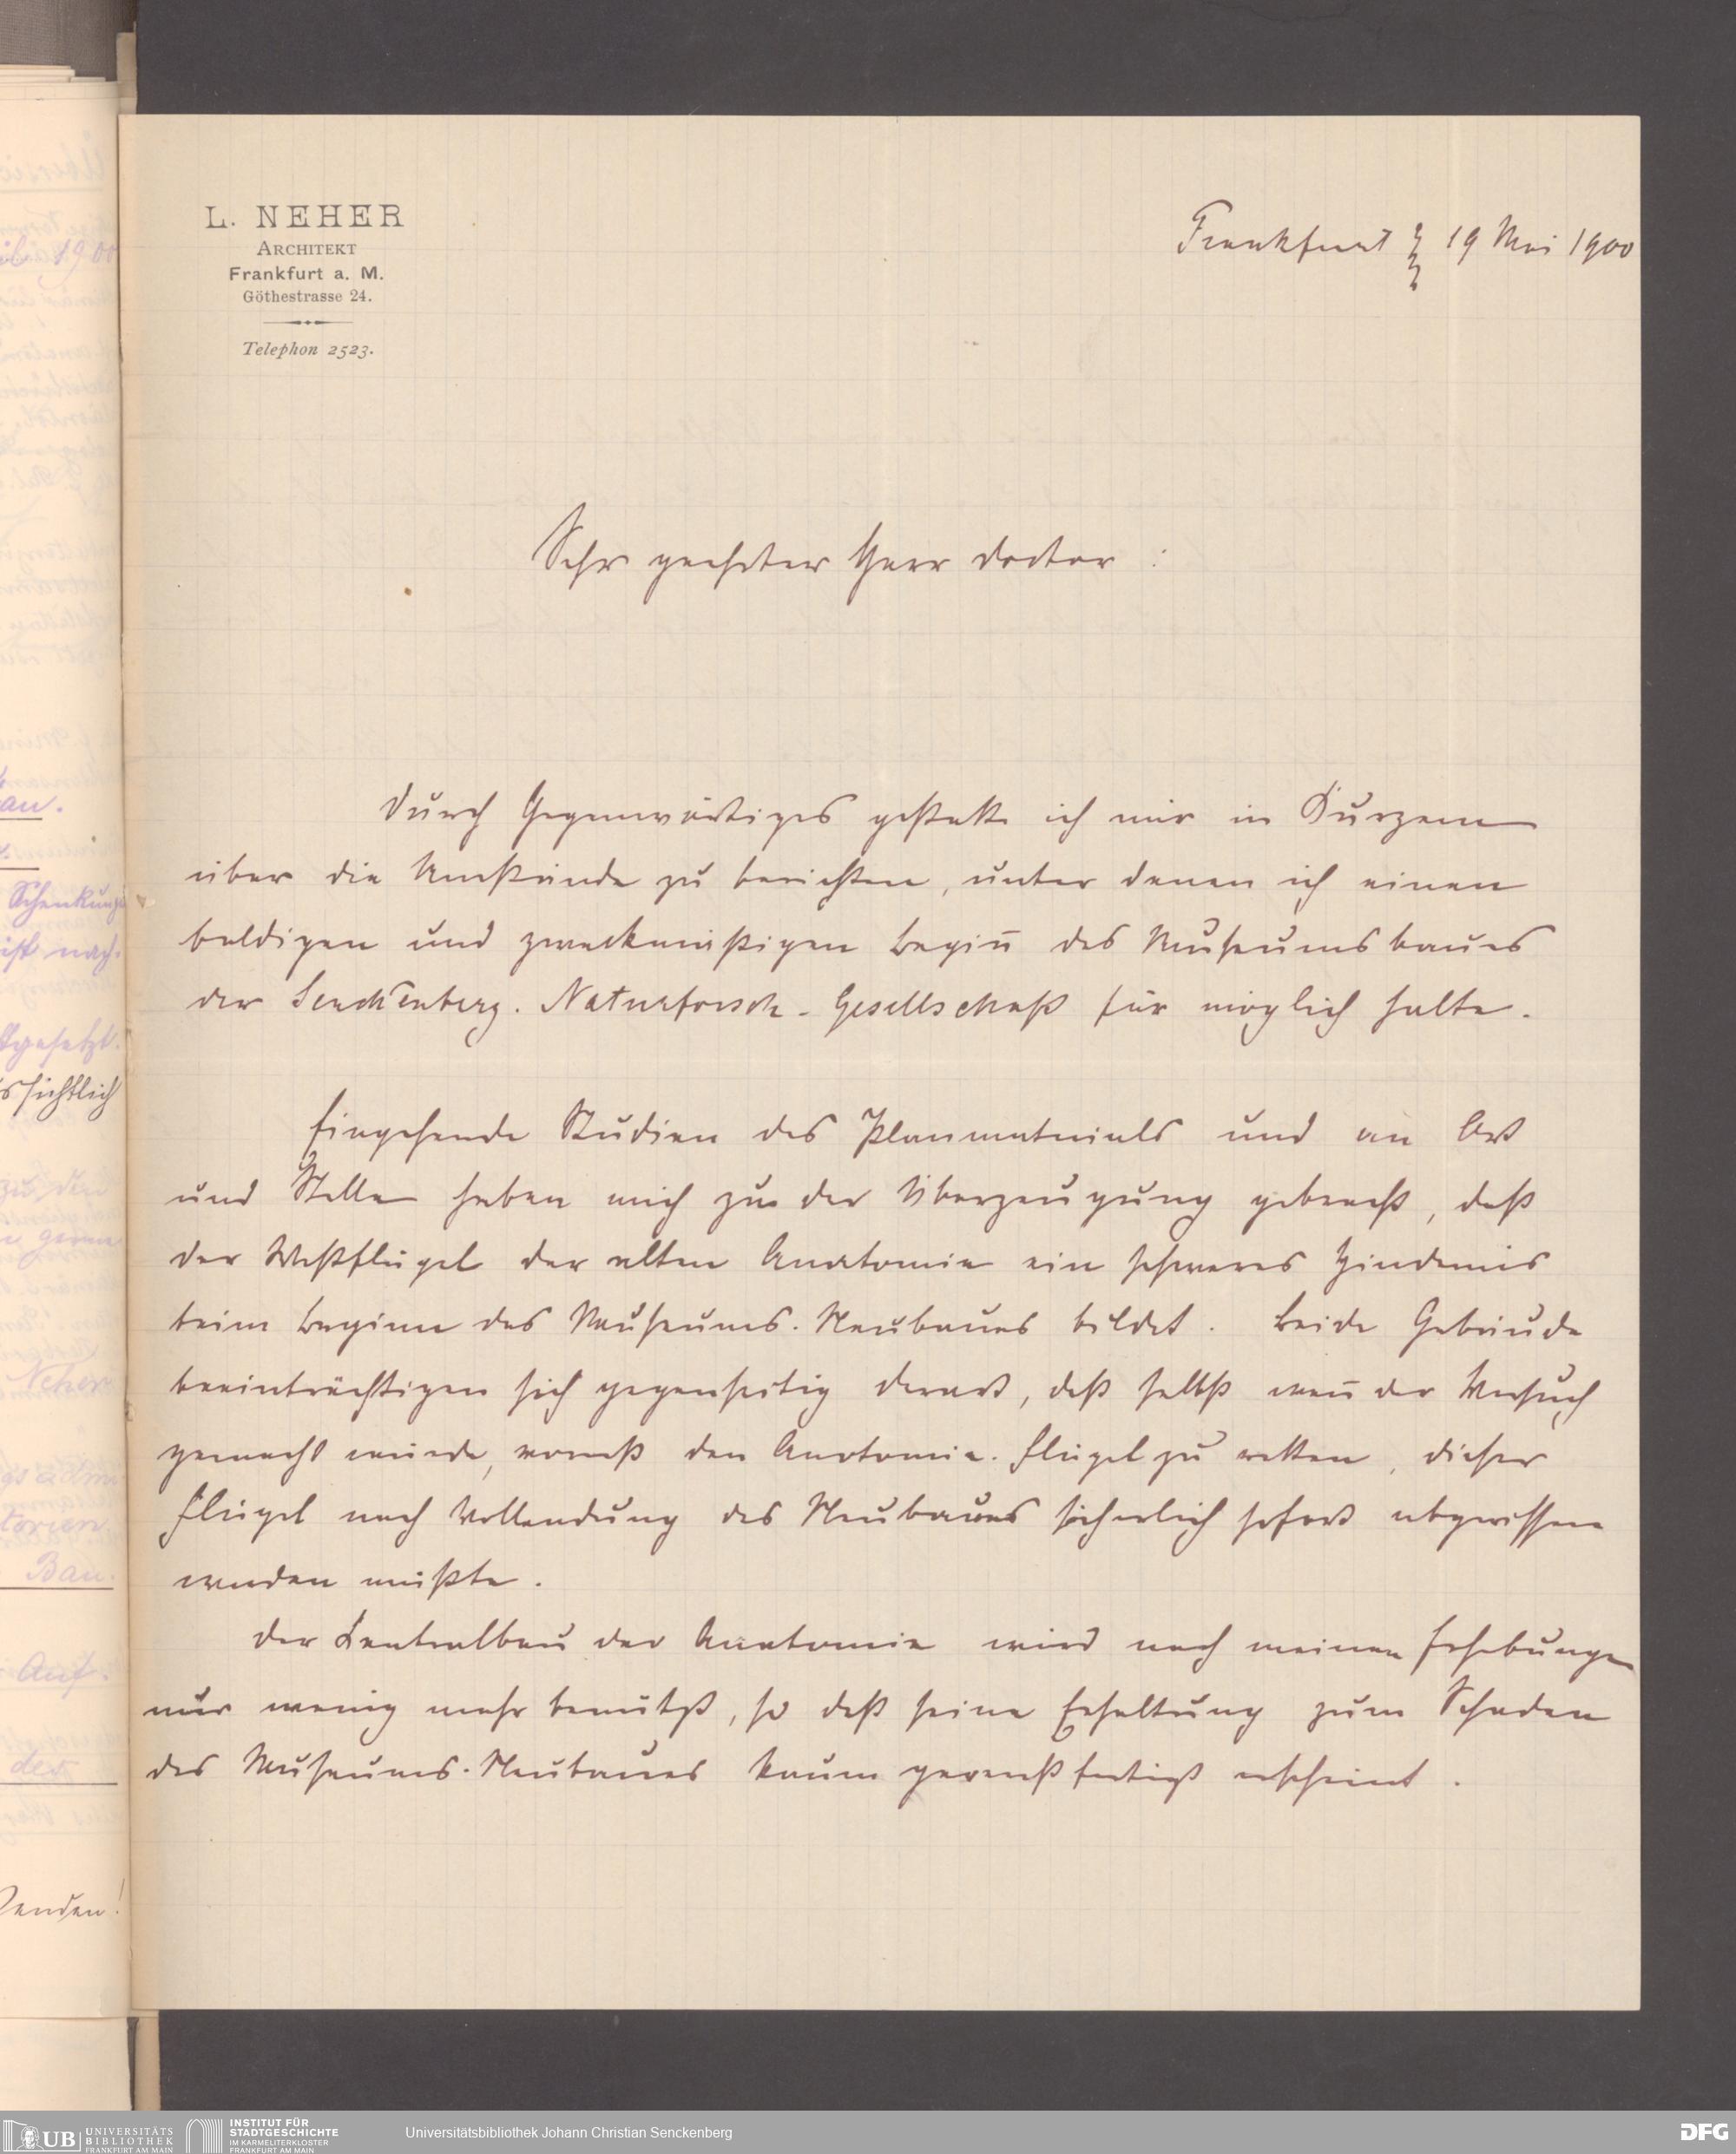 L. NEHER
ARCHITEKT
Frankfurt a. M.
Göthestrasse 24.
Telephon 2523.
Frankfurt 19 Mai 1900
Sehr geehrter Herr Doctor :
Durch Gegenwärtiges gestatte ich mir in Kurzem
über die Umstände zu berichten, unter denen ich einen
baldigen und zweckmäßigen Begin̄ des Museumsbaues
der Senckenberg. Naturforsch. Gesellschaft für möglich halte.
Eingehende Studien des Planmaterials und an Ort
und Stelle haben mich zu der Überzeugung gebracht, daß
der Westflügel der alten Anatomie ein schweres Hindernis
beim Beginne des Museums-Neubaues bildet. Beide Gebäude
beeinträchtigen sich gegenseitig derart, daß selbst wen̄ der Versuch
gemacht würde, vorerst den Anatomie-Flügel zu retten, dieser
Flügel nach Vollendung des Neubaues sicherlich sofort abgerissen
werden müßte.
Der Centralbau der Anatomie wird nach meinen Erhebungen
nur wenig mehr benützt, so daß seine Erhaltung zum Schaden
des Museums-Neubaues kaum gerechtfertigt erscheint.
au.
Schenkung
ist nach.
tgesetzt.
sichtlich
Neher
torien.
Bau.
Auf
des
senden!
UB UNIVERSITÄTS
BIBLIOTHEK
FRANKFURT AM MAIN
INSTITUT FÜR
STADTGESCHICHTE
IM KARMELITERKLOSTER
FRANKFURT AM MAIN
Universitätsbibliothek Johann Christian Senckenberg
DFG